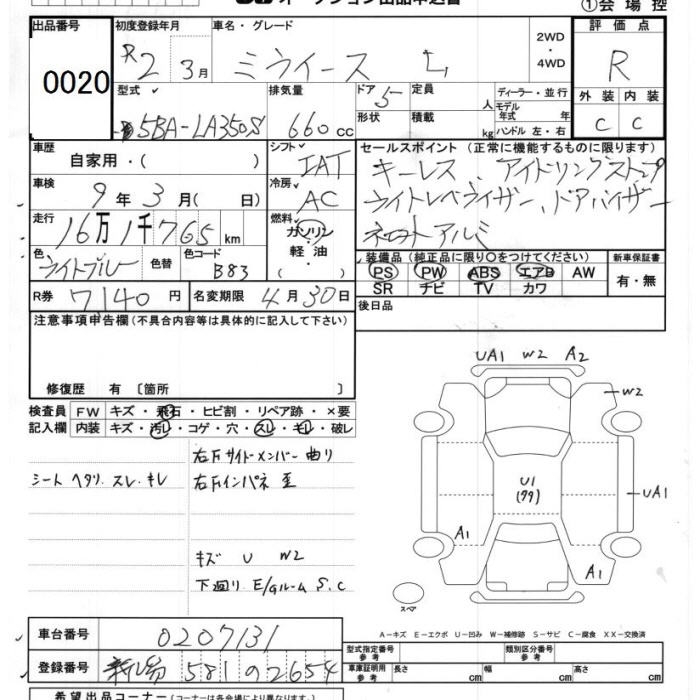 ①会 場 控
出品番号
0020
初度登録年月
R2 3月
車名・グレード
ミライース L
2WD
・
4WD
評 価 点
R
外 装 内 装
C C
型式
5BA-LA350S
排気量
660 cc
ドア
5
定員
人
形状
積載
kg
ディーラー・並 行
モデル
年式 年
ハンドル 左・右
車歴
自家用・( )
シフト
IAT
セールスポイント (正常に機能するものに限ります)
キーレス、アイドリングストップ
ライトレベライザー、ドアバイザー
社外アルミ
車検
9 年 3 月 ( 日)
冷房
AC
走行
16万 1千 765 km
燃料
ガソリン
・
軽 油
・
( )
色
ライトブルー
色替
色コード
B83
装備品 (純正品に限り○をつけてください)
PS PW ABS エアB AW
SR ナビ TV カワ
新車保証書
有・無
R券 7140 円
名変期限 4 月 30 日
後日品
注意事項申告欄 (不具合内容等は具体的に記入して下さい)
修復歴 有 〔箇所 〕
検査員
記入欄
FW キズ・飛石・ヒビ割・リペア跡・×要
内装 キズ・汚レ・コゲ・穴・スレ・キレ・破レ
シート ヘタリ、スレ・キレ
右Fサイドメンバー 曲リ
右Fインパネ 歪
キズ U W2
下廻リ、E/gルーム S、C
UA1 W2 A2
W2
U1
(99)
UA1
A1
A1
スペア
A-キズ E-エクボ U-凹み W-補修跡 S-サビ C-腐食 XX-交換済
車台番号
0207131
登録番号
581 の 2654
型式指定番号
参 考
類別区分番号
参 考
車庫証明用
参 考
長さ
幅
高さ
希 望 出 品 コ ー ナ ー (コーナーは各会場により異なります)